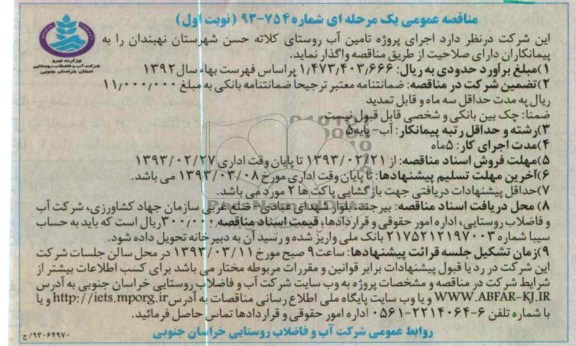 مناقصه عمومی یک مرحله ای شماره ۷۵۴-۹۳ (نوبت اول)
این شرکت درنظر دارد اجرای پروژه تامین آب روستای کلاته حسن شهرستان نهبندان را به
پیمانکاران دارای صلاحیت از طریق مناقصه واگذار نماید.
۱)مبلغ برآورد حدودی به ریال: ۱/۴۷۳/۴۰۳/۶۶۶ براساس فهرست بهاء سال ۱۳۹۲
۲)تضمین شرکت در مناقصه: ضمانتنامه معتبر ترجیحا ضمانتنامه بانکی به مبلغ ۱۱/۰۰۰/۰۰۰
ریال به مدت حداقل سه ماه و قابل تمدید
ضمنا: چک بین بانکی و شخصی قابل قبول نیست.
۳)رشته و حداقل رتبه پیمانکار: آب- پایه۵
۴)مدت اجرای کار: ۵ماه
۵)مهلت فروش اسناد مناقصه: از ۱۳۹۳/۰۲/۲۱ تا پایان وقت اداری ۱۳۹۳/۰۲/۲۷
۶)آخرین مهلت تسلیم پیشنهادها: تا پایان وقت اداری مورخ ۱۳۹۳/۰۳/۰۸ می باشد.
۷)حداقل پیشنهادات دریافتی جهت بازگشایی پاکت ها ۲ مورد می باشد.
۸) محل دریافت اسناد مناقصه: بیرجند، بلوار شهدای عبادی- ضلع غربی سازمان جهاد کشاورزی، شرکت آب
و فاضلاب روستایی، اداره امور حقوقی و قراردادها، قیمت اسناد مناقصه ۳۰۰/۰۰۰ ریال است که باید به حساب
سیبا شماره ۲۱۷۵۲۱۲۱۹۷۰۰۳ بانک ملی واریز شده و رسید آن به دبیرخانه تحویل داده شود.
۹)زمان تشکیل جلسه قرائت پیشنهادها: ساعت ۹ صبح مورخ ۱۳۹۳/۰۳/۱۱ در محل سالن جلسات شرکت
این شرکت در رد یا قبول پیشنهادات برابر قوانین و مقررات مربوطه مختار می باشد برای کسب اطلاعات بیشتر از
شرایط شرکت در مناقصه و مشخصات پروژه به وب سایت شرکت آب و فاضلاب روستایی خراسان جنوبی به آدرس
WWW.ABFAR-KJ.IR و یا وب سایت پایگاه ملی اطلاع رسانی مناقصات به آدرس http://iets.mporg.ir و یا
با شماره تلفن ۶-۲۲۱۴۰۶۴-۰۵۶۱ اداره امور حقوقی و قراردادها تماس حاصل فرمائید.
روابط عمومی شرکت آب و فاضلاب روستایی خراسان جنوبی
۹۳۰۶۴۹۷۰/ج